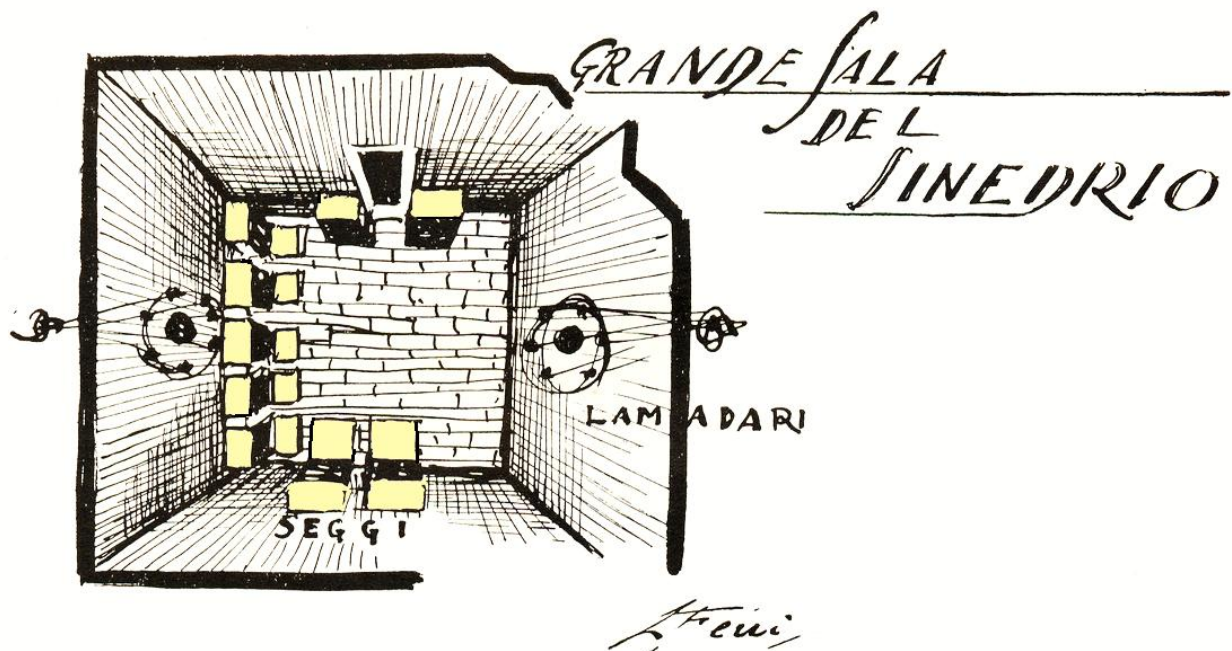 GRANDE SALA
DEL
SINEDRIO
LAMPADARI
SEGGI